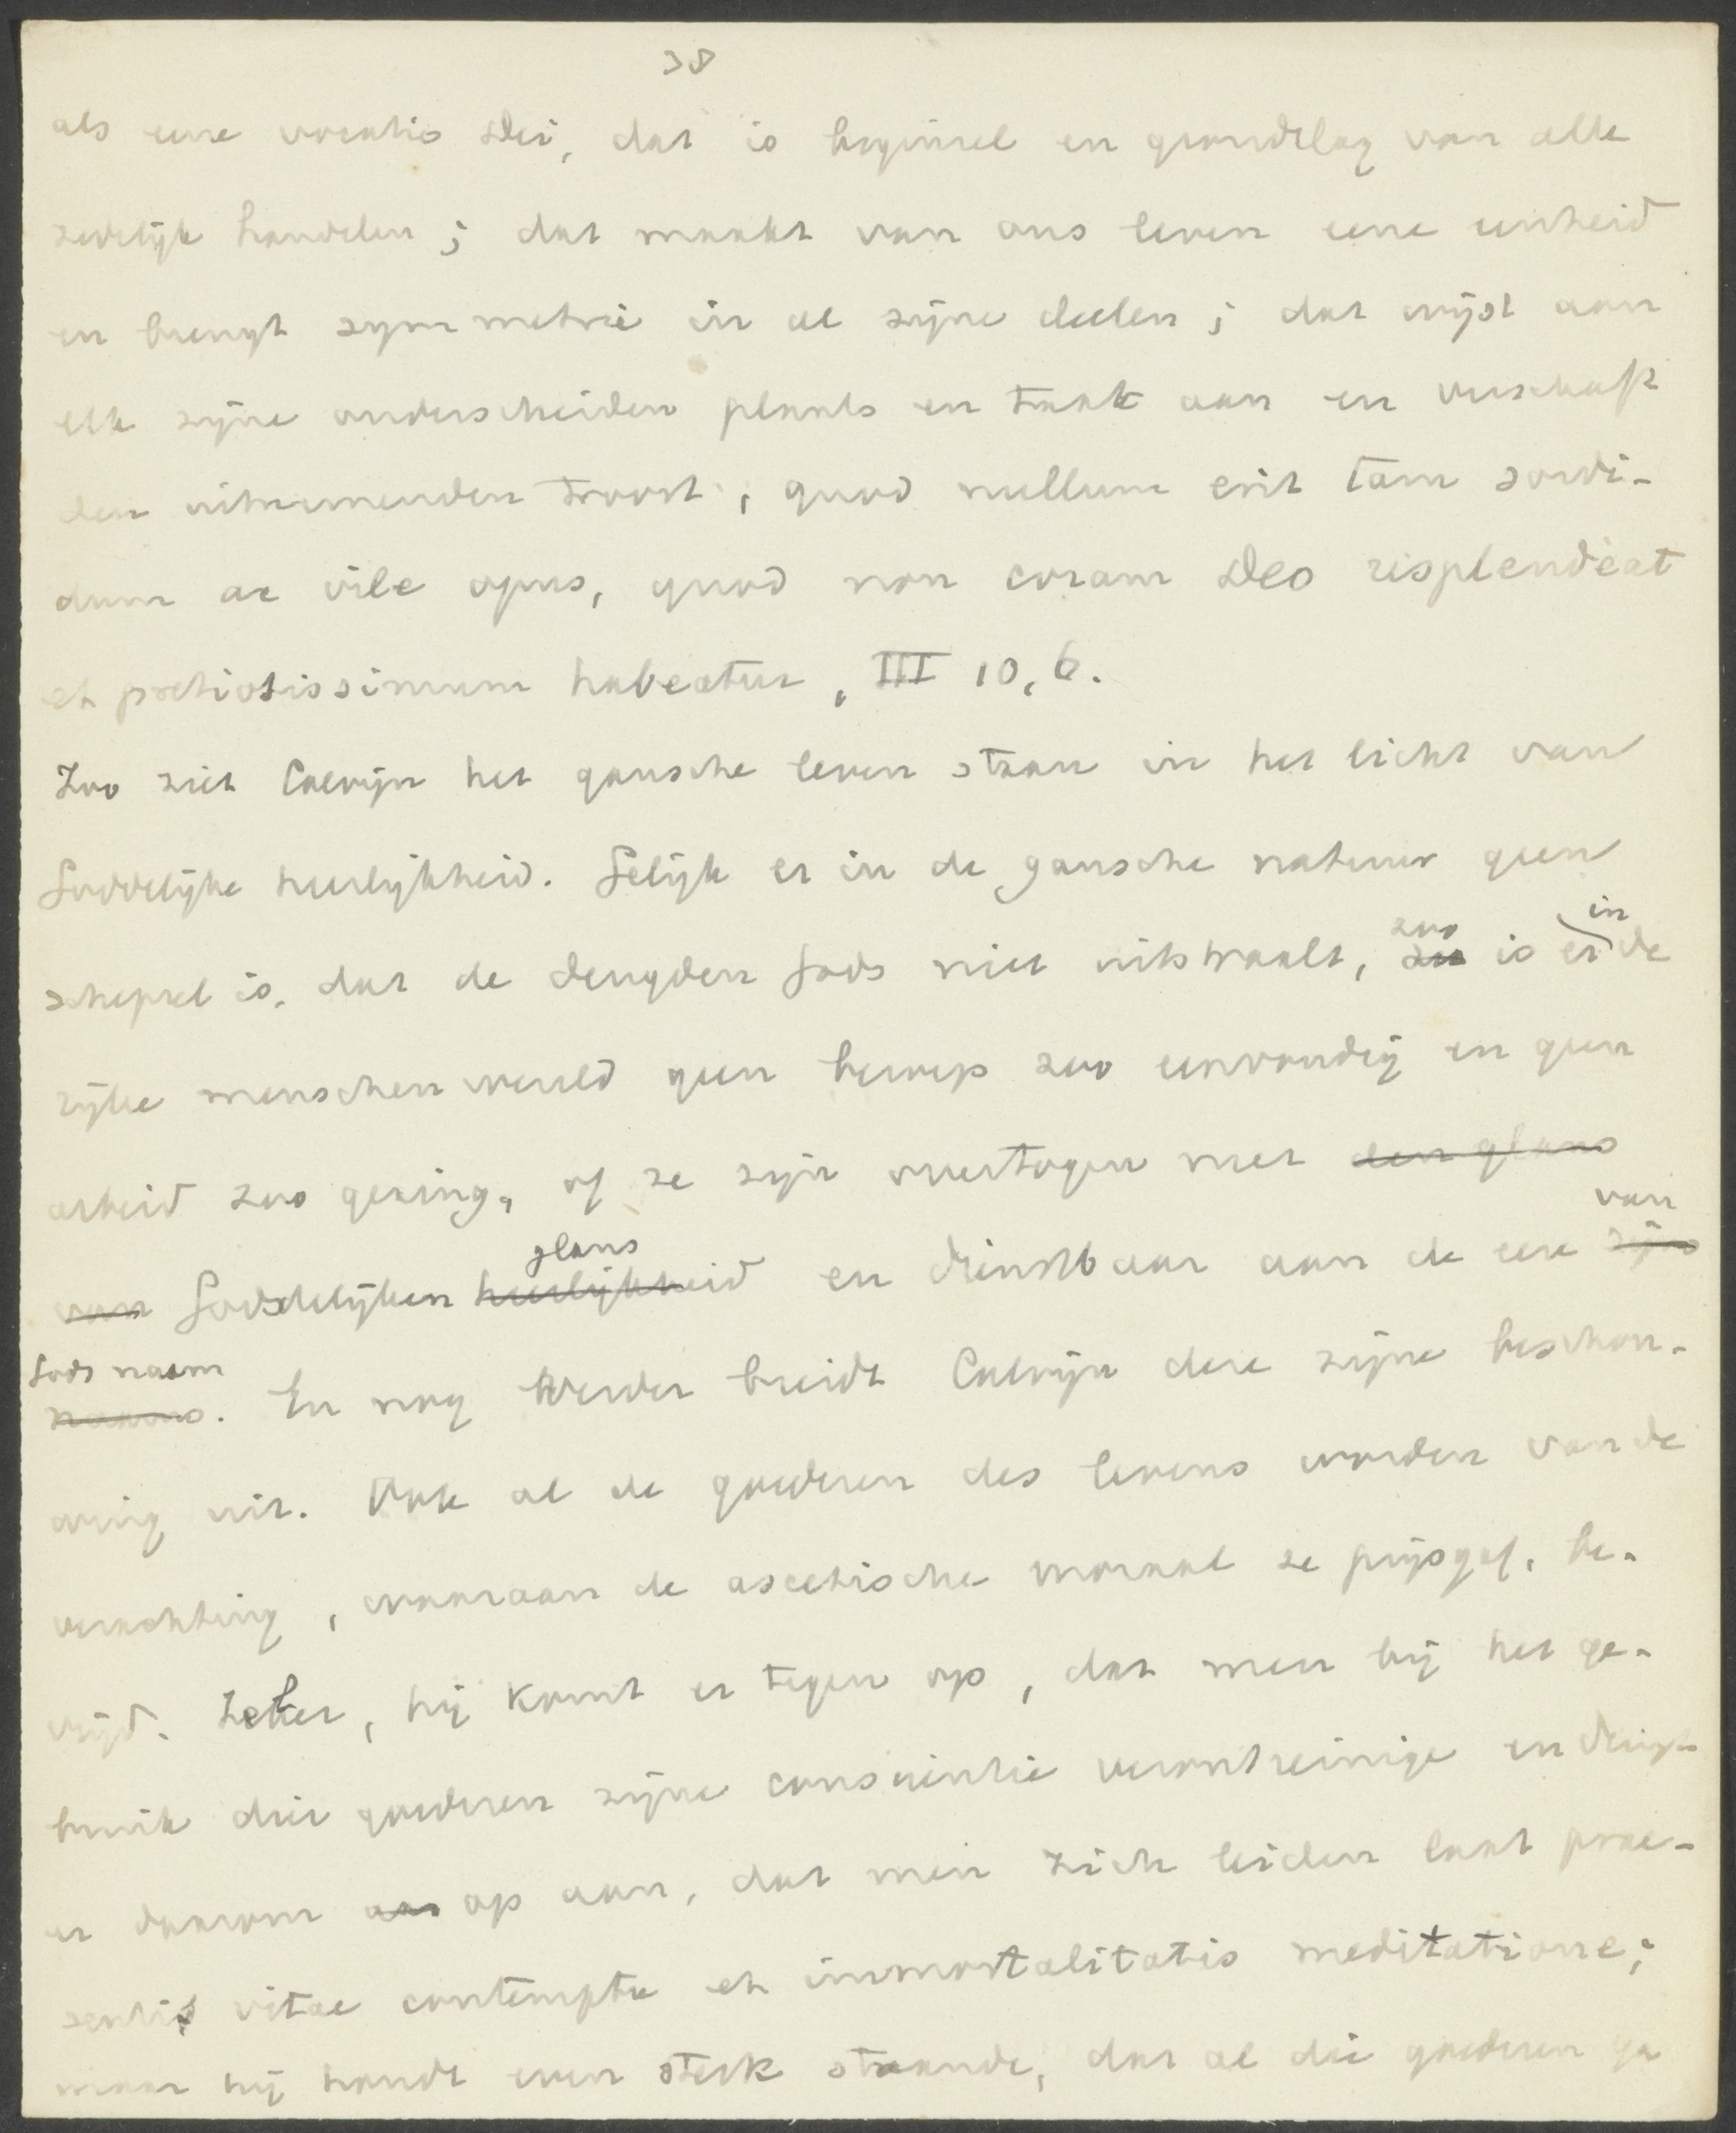 38
als eene vocatio Dei, dat is beginsel en grondslag van alle
zedelijk handelen; dat maakt van ons leven eene eenheid
en brengt symmetrie in al zijne deelen; dat wijst aan
elk zijne onderscheiden plaats en taak aan en verschaft
den uitnemenden troost, quod nullum erit tam sordi-
dum ac vile opus, quod non coram Deo resplendeat
et pretiosissimum habeatur, III 10, 6.
Zoo ziet Calvijn het gansche leven staan in het licht van
Goddelijke heerlijkheid. Gelijk er in de gansche natuur geen
schepsel is, dat de deugden Gods niet uitstraalt, zoo is er in de
rijke menschenwereld geen beroep zoo eenvoudig en geen
arbeid zoo gering, of ze zijn overtogen met den glans
van Goddelijken heerlijkheid glans en dienstbaar aan de eere zijns van
naams Gods naam. En nog verder breidt Calvijn deze zijne beschou-
wing uit. Ook al de goederen des levens worden van de
verachting, waaraan de ascetische moraal ze prijsgaf, be-
vrijd. Zeker, hij komt er tegen op, dat men bij het ge-
bruik dier goederen zijne conscientie verontreinige en dringt
er daarom aan op aan, dat men zich leiden laat prae-
sentis vitae contemptu et immortalitatis meditatione;
maar hij houdt even sterk staande, dat al die goederen ga